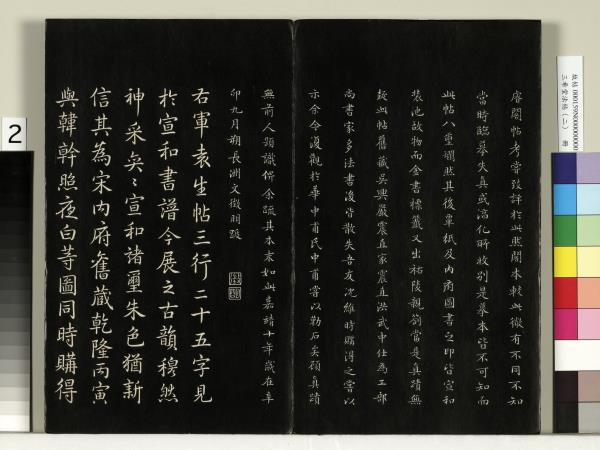 睿閣帖考當致詳於此然閣本較此微有不同不知
當時臨摹失真或淳化所收別是摹本皆不可知而
此帖八璽爛然其後覃紙及內閣圖書之印皆宣和
裝池故物而金書標籤又出祐陵親劄當是真蹟無
疑此帖舊藏吳興嚴震直家震直洪武中仕為工部
尚書家多法書後皆散失吾友沈維時購得之嘗以
示余今復觀於華中甫氏中甫嘗以勒石矣顧真蹟
無前人題識俾余疏其本末如此嘉靖十年歲在辛
卯九月朔長洲文徵明跋
右軍袁生帖三行二十五字見
於宣和書譜今展之古韻穆然
神采奕〻宣和諸璽朱色猶新
信其為宋內府舊藏乾隆丙寅
與韓幹照夜白等圖同時購得
2
故帖 000159N000000000
三希堂法帖（二） 冊